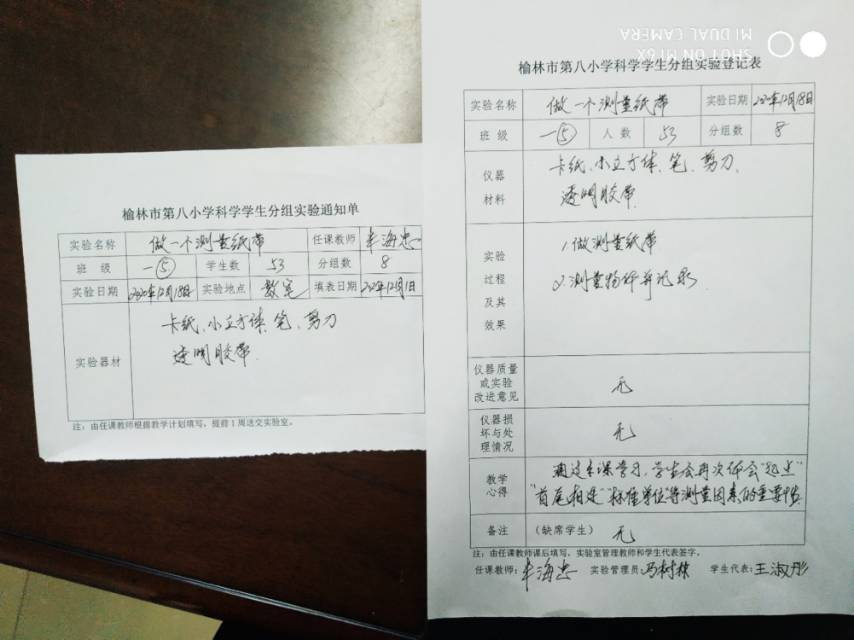 榆林市第八小学科学学生分组实验通知单
实验名称 做一个测量纸带 任课教师 海忠
班 级 一⑤ 学生数 53 分组数 8
实验日期 2020年12月18日 实验地点 教室 填表日期 2020年12月1日
实验器材
卡纸、小立方体、笔、剪刀
透明胶带.
注：由任课教师根据教学计划填写，提前1周送交实验室。
SHOT ON MI 6X
MI DUAL CAMERA
榆林市第八小学科学学生分组实验登记表
实验名称 做一个测量纸带 实验日期 2020年12月18日
班 级 一⑤ 人 数 53 分组数 8
仪器材料
卡纸、小立方体、笔、剪刀、
透明胶带.
实验过程及其效果
1.做测量纸带
2.测量物体并记录
仪器质量或实验改进意见 无
仪器损坏与处理情况 无
教学心得
通过本课学习，学生会再次体会"起点"
"首尾相连""标准单位"等测量因素的重要性.
备注 （缺席学生） 无
注：由任课教师课后填写，实验室管理教师和学生代表签字。
任课教师： 海忠 实验管理员：冯树林 学生代表：王淑彤